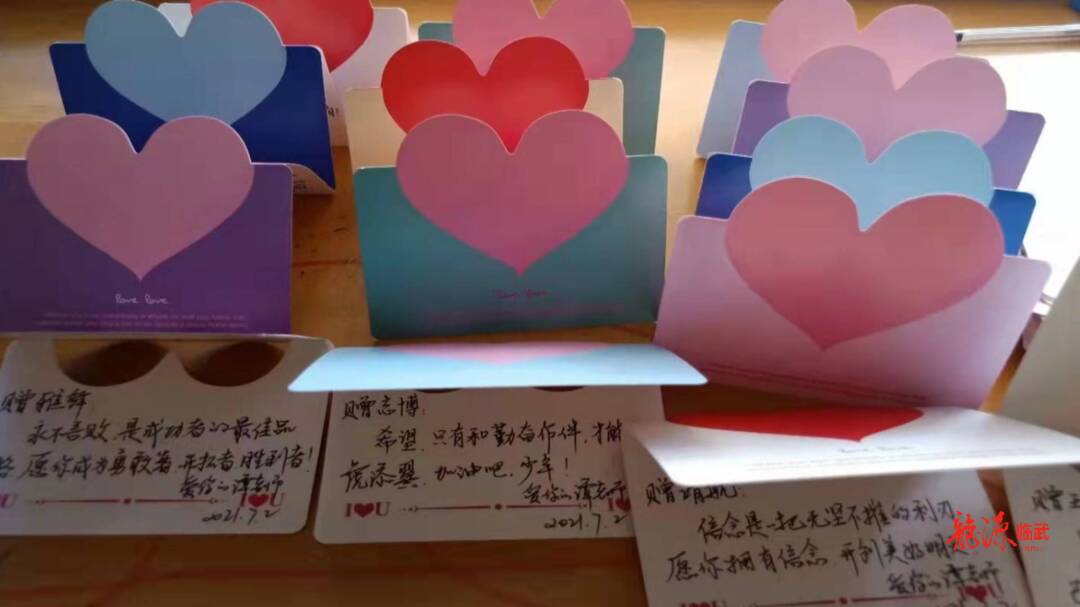 Love Love
Love Love
赠雅
永不言败,是成功者的最佳品
愿你成为勇敢者、开拓者、胜利者!
爱你的谭老师
2021.7.2
U
赠志博:
希望,只有和勤奋作伴,才能
虎添翼。加油吧,少年!
爱你的谭老师
I U
2021.7.2
赠
信念是一把无坚不摧的利刃
愿你拥有信念,开创美好明
爱你的谭老师
I U
赠
龙源临武